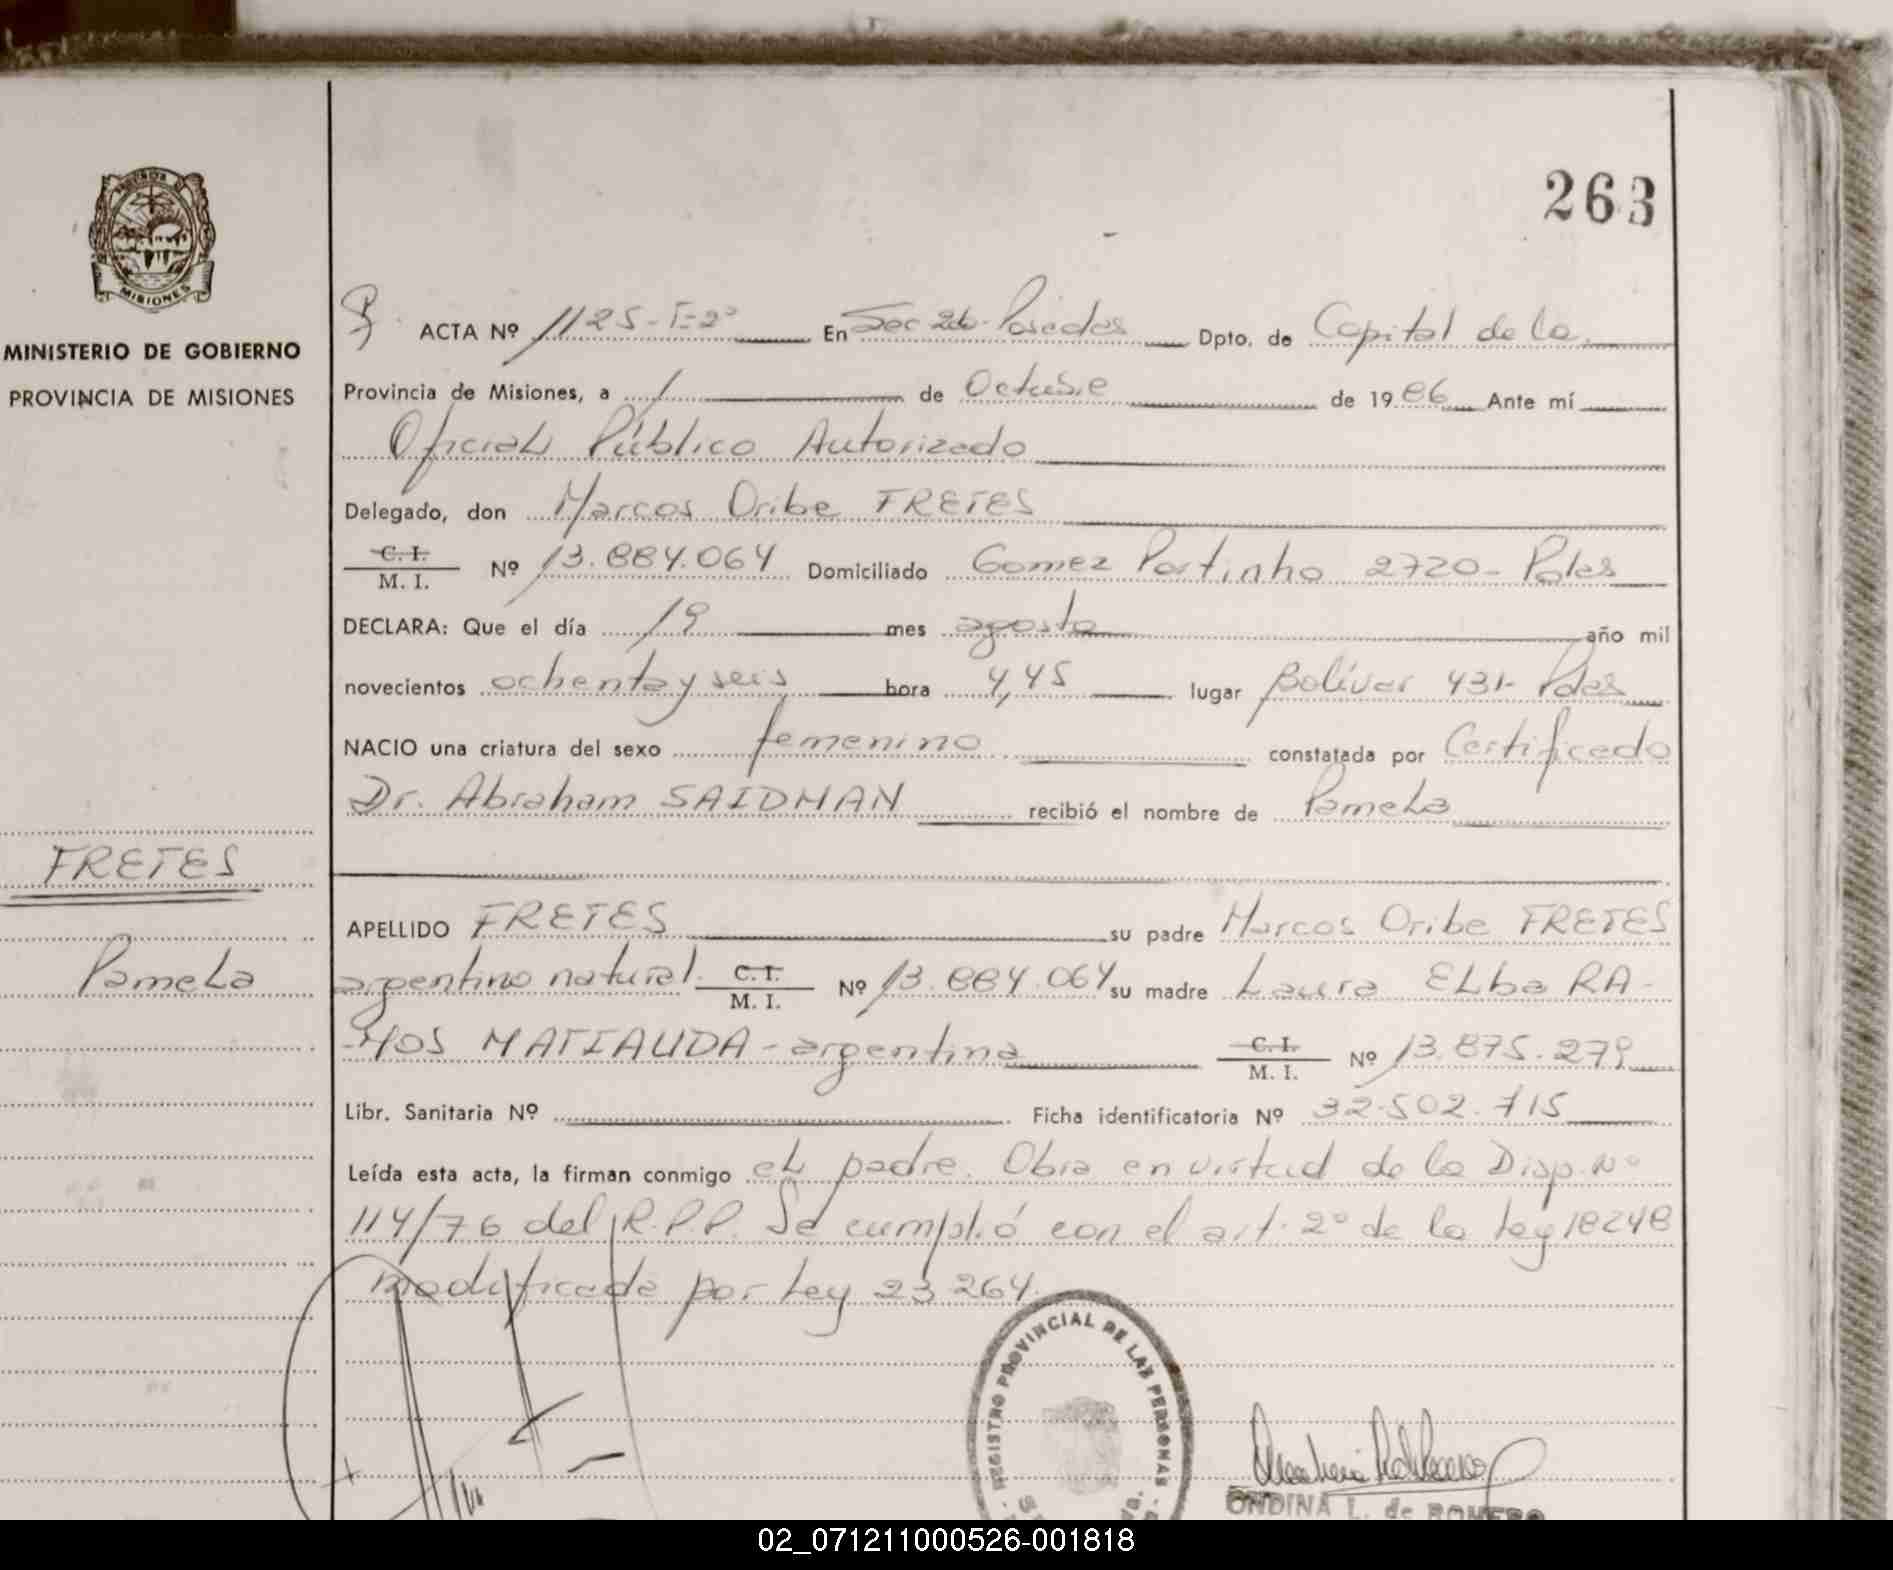 263
PROVINCIA DE
MISIONES
MINISTERIO DE GOBIERNO
PROVINCIA DE MISIONES
FRETES
Pamela
ACTA Nº 1125-T=2º En Sec 2da- Posadas Dpto. de Capital de la
Provincia de Misiones, a 1 de Octubre de 1986 Ante mí
Oficial Público Autorizado
Delegado, don Marcos Oribe FRETES
C. I.
M. I. Nº 13.884.064 Domiciliado Gomez Portinho 2720- Pdas
DECLARA: Que el día 19 mes agosto año mil
novecientos ochenta y seis hora 4,45 lugar Bolívar 431- Pdas
NACIO una criatura del sexo femenino constatada por Certificado
Dr. Abraham SAIDMAN recibió el nombre de Pamela
APELLIDO FRETES su padre Marcos Oribe FRETES
argentino natural. C. I.
M. I. Nº 13.884.064 su madre Laura Elba RA-
MOS MATIAUDA - argentina C. I.
M. I. Nº 13.875.279
Libr. Sanitaria Nº Ficha identificatoria Nº 32.502.715
Leída esta acta, la firman conmigo el padre. Obra en virtud de la Disp. Nº
114/76 del R.P.P. Se cumplió con el art. 2º de la Ley 18248
modificada por Ley 23264.
REGISTRO PROVINCIAL DE LAS PERSONAS
ONDINA L. de ROMERO
02_071211000526-001818